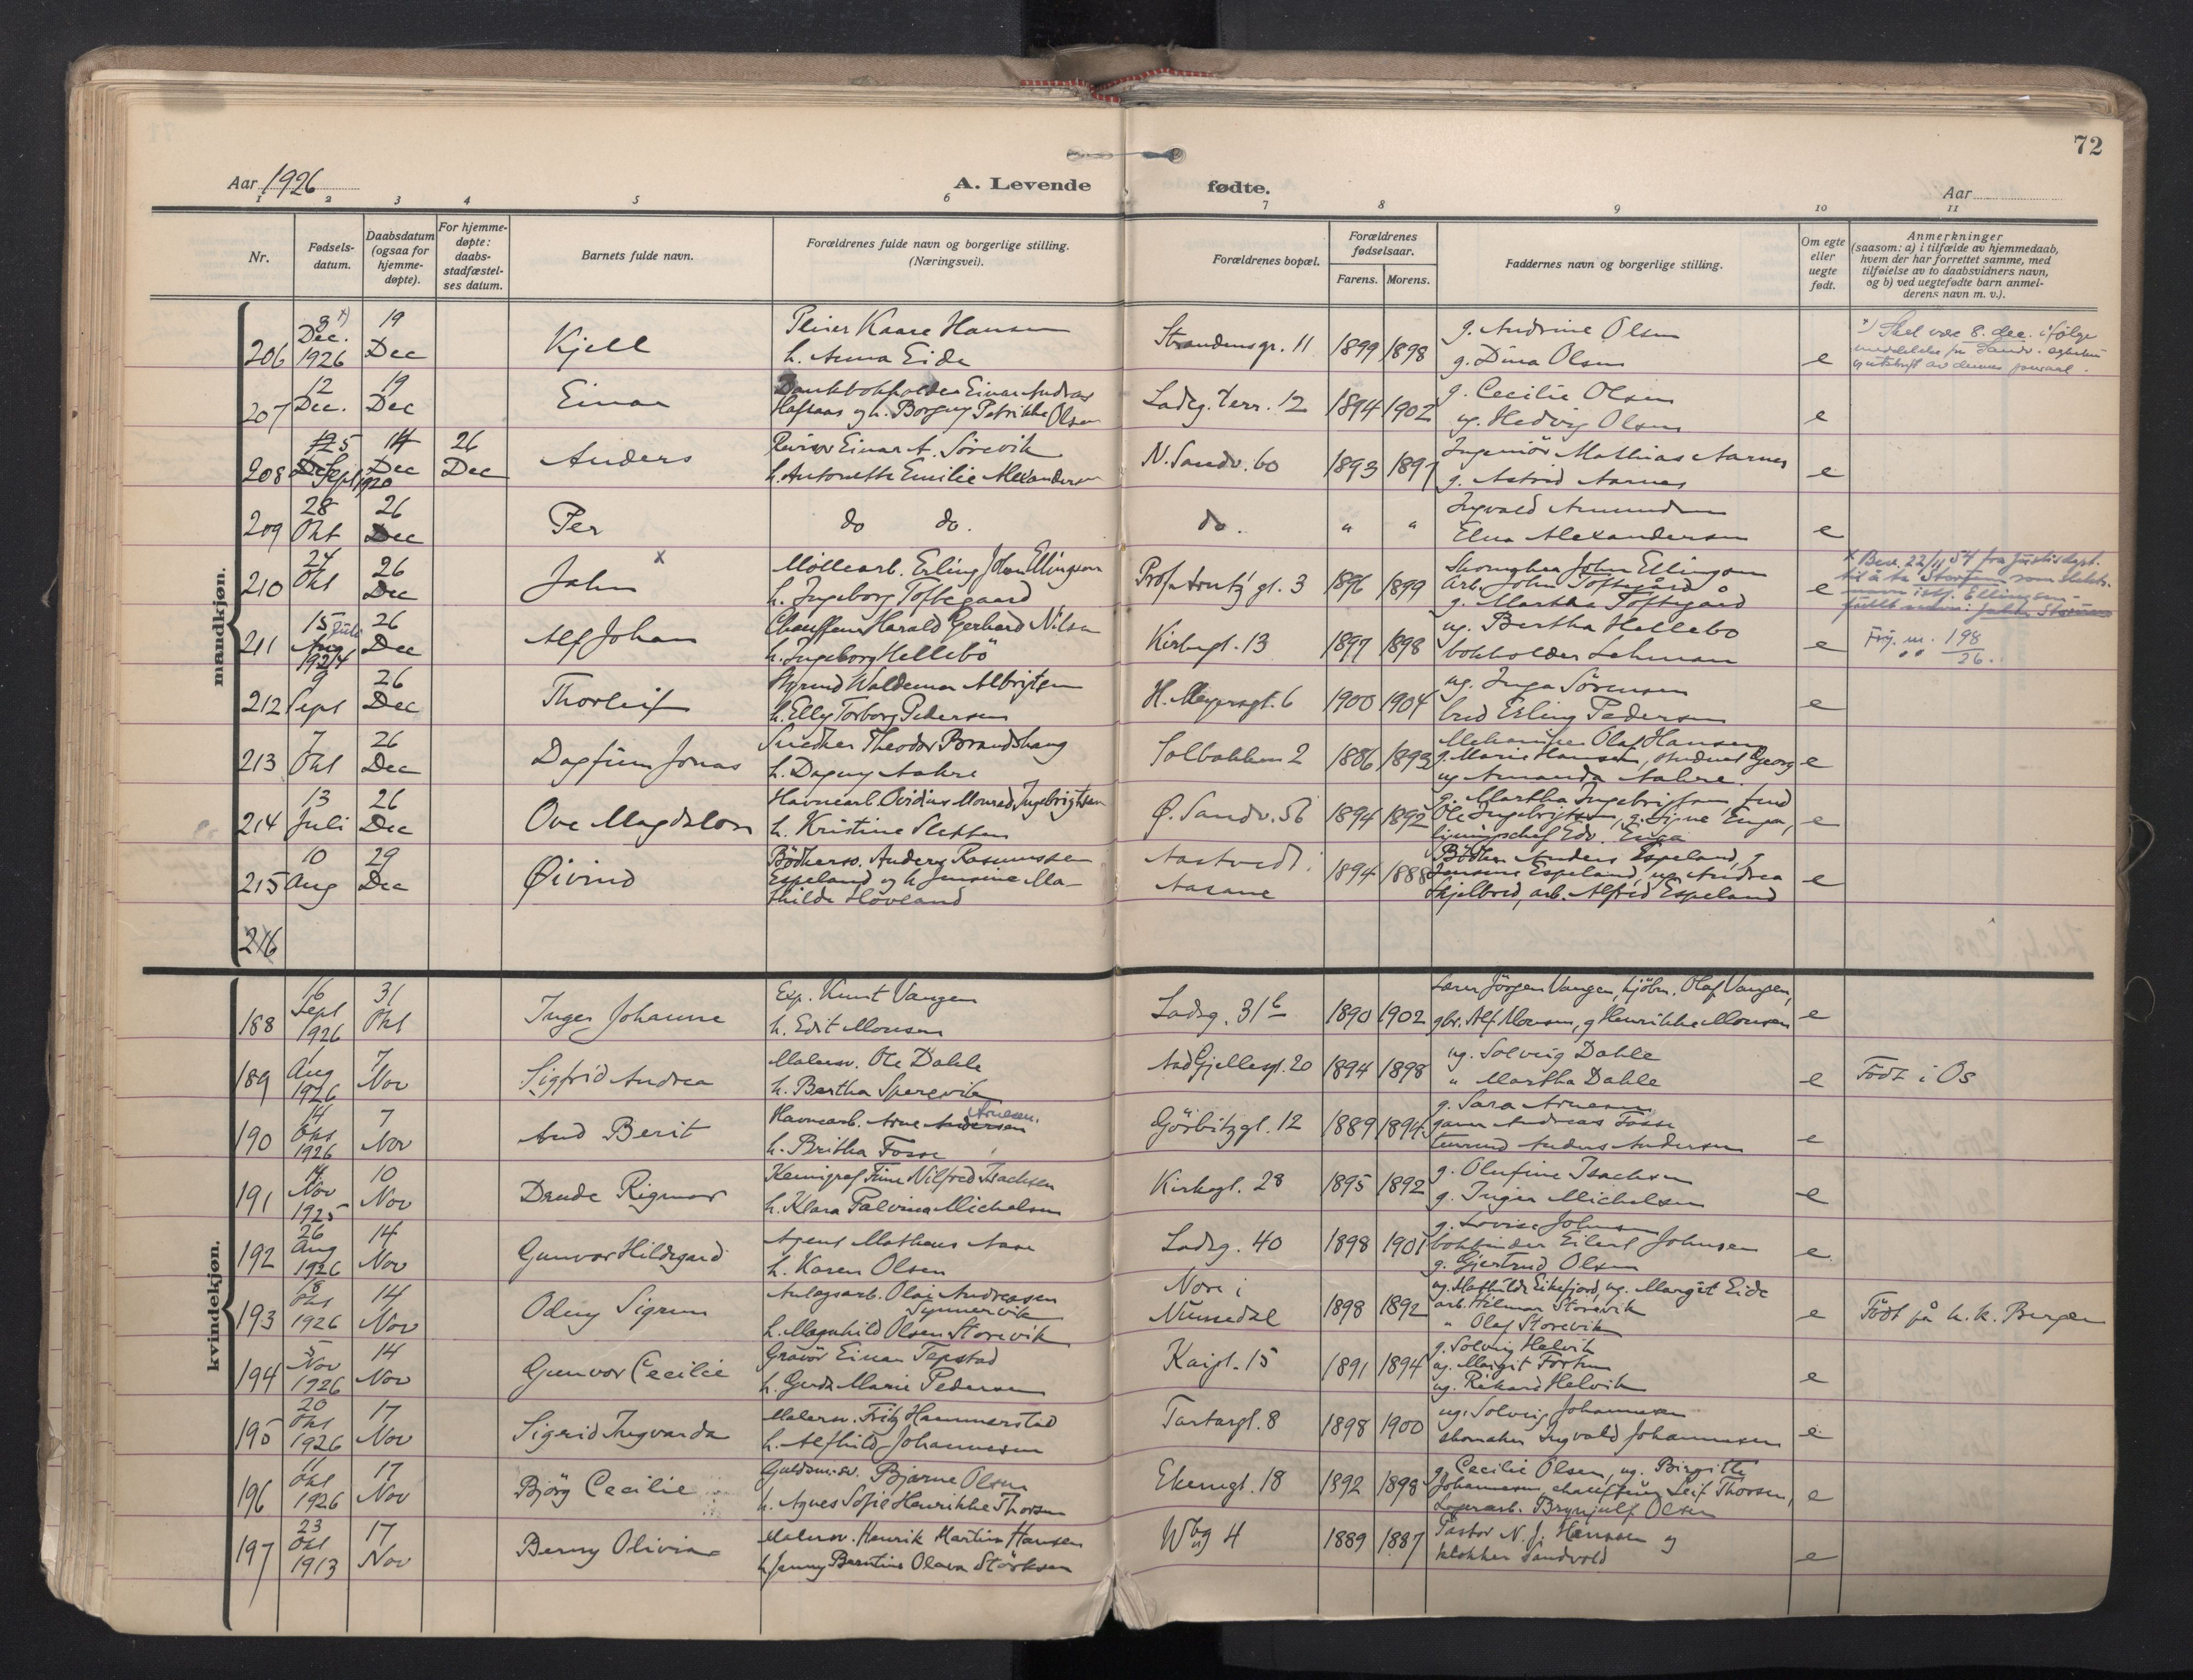 72
Aar 1926
A. Levende fødte.
Aar
1 2 3 4 5 6 7 8 9 10 11
Nr.
Fødsels-
datum.
Daabsdatum
(ogsaa for
hjemme-
døpte).
For hjemme-
døpte:
daabs-
stadfæstel-
ses datum.
Barnets fulde navn.
Forældrenes fulde navn og borgerlige stilling.
(Næringsvei).
Forældrenes bopæl.
Forældrenes
fødselsaar.
Farens. Morens.
Faddernes navn og borgerlige stilling.
Om egte
eller
uegte
født.
Anmerkninger
(saasom: a) i tilfælde av hjemmedaab,
hvem der har forrettet samme, med
tilføielse av to daabsvidners navn,
og b) ved uegtefødte barn anmel-
derens navn m. v.).
mandkjøn.
206 Dec. 1926 19 Dec Kjell
Kaare Hansen
h. Anna Eide
Strandensgr. 11 1899 1898
g. Andrine Olsen
g. Dina Olsen
e
x) Skal være 8. dec. ifølge
207 12 Dec. 19 Dec Einar
Bankbokholder Einar Andreas
Haftaas og h. Borgny Petrikke Olsen
Ladeg. terr. 12 1894 1902
g. Cecilie Olsen
ug. Hedvig Olsen
e
208 5 Sept 1920 14 Dec 26 Dec Anders
Revisor Einar A. Sørevik
h. Antonette Emilie Alexandersen
N. Sandv. 60 1893 1897
Ingeniør Mathias Aarnes
g. Astrid Aarnes
e
209 28 Okt 26 Dec Per
do do.
do. " "
Ingvald Amundsen
Elna Alexandersen
e
210 24 Okt 26 Dec Jahn x
Møllearb. Erling Johan Ellingsen
h. Ingeborg Toftegaard
Prof. gt. 3 1896 1899
John Ellingsen
arb. John Toftegård
g. Martha Toftegård
e
x Bev. 22/11 54 fra Justisdept.
til å ta Storfum som slekts-
navn istf. Ellingsen -
211 15 Juli 1924 26 Dec Alf Johan
Chauffeur Harald Gerhard Nilsen
h. Ingeborg Hellebö
Kirkegt. 13 1897 1898
ug. Bertha Hellebo
bokholder Lehman
e
198
26.
212 9 Sept 26 Dec Thorleif
Styrmd Waldemar Albrigtsen
h. Elly Torborg Pedersen
H. Meyersgt. 6 1900 1904
ug. Inga Sörensen
Erling Pedersen
e
213 7 Okt 26 Dec Dagfinn Jonas
Snedker Theodor Brandshaug
h. Dagny Aakre
Solbakken 2 1886 1893
Mekaniker Olaf Hansen
g. Marie Hansen, student Georg
ug Amanda Aakre.
e
214 13 Juli 26 Dec Ove Magdalon
Havnearb. Ovidius Monrad Ingebrigtsen
h. Kristine Sletten
Ø. Sandv. 56 1894 1892
g. Martha Ingebrigtsen
Ole Ingebrigtsen, g. Signe Enga,
ligningschef Edv. Enga
e
215 10 Aug 29 Dec Øivind
Bödkersv. Anders Rasmussen
Espeland og h Jensine Ma-
thilde Hovland
Aastvedt i
Aasane 1894 1888
Bödker Anders Espeland, g
Jensine Espeland, ug Andrea
Skjelbred, arb. Alfred Espeland
e
216
kvindekjøn.
188 16 Sept 1926 31 Okt Inger Johanne
Exp. Knut Vangen
h. Edit Monsen
Ladeg. 31b 1890 1902
Lærer Jörgen Vangen, kjöbm. Olaf Vangen,
gbr. Alf Monsen, g Henrikke Monsen
e
189 1 Aug 1926 7 Nov Sigfrid Andrea
Malersv. Ole Dahle
h. Bertha Sperrevik
Aad Gjellesgt. 20 1894 1898
ug. Solveig Dahle
" Martha Dahle
e
Födt i Os
190 14 Okt 1926 7 Nov Aud Berit
Havnearb. Arne Andersen Arnesen.
h. Britha Fosse
Görbitzgt. 12 1889 1894
g. Sara Arnesen
Andreas Fosse
Anders Andersen
e
191 14 Nov 1925 10 Nov Drude Rigmor
Kemigraf Finn Nilfred Isachsen
h. Klara Palvina Michelsen
Kirkegt. 28 1895 1892
g. Olufine Isachsen
g. Inger Michelsen
e
192 26 Aug 1926 14 Nov Gunvor Hildegard
Agent Matheus Aase
h. Karen Olsen
Ladeg. 40 1898 1901
g. Lovise Johnsen
bokbinder Eilert Johnsen
g. Gjertrud Olsen
e
193 18 Okt 1926 14 Nov Odny Sigrun
Anlægsarb. Olai Andreasen
Synnervik
h. Magnhild Olsen Storevik
Nore i
Numedal 1898 1892
ug. Mathilde Eikefjord, ug. Margit Eide
arb. Hilmar Storevik
" Olaf Storevik
e
Födt på k. k. Bergen
194 5 Nov 1926 14 Nov Gunvor Cecilie
Gravör Einar Tepstad
h. Gerda Marie Pedersen
Kaigt. 15 1891 1894
g. Solveig Helvik
ug. Margit Fortun
ug. Rikard Helvik
e
195 20 Okt 1926 17 Nov Sigrid Ingvarda
Malersv. Fritz Hammerstad
h. Alfhild Johannesen
Tartargt. 8 1898 1900
ug. Solveig Johannesen
skomaker Ingvald Johannesen
e
196 11 Okt 1926 17 Nov Björg Cecilie
Guldsm.sv. Bjarne Olsen
h. Agnes Sofie Henrikke Thorsen
Ekerngt. 18 1892 1898
g. Cecilie Olsen, ug. Birgitte
Johannesen, chauffeur Leif Thorsen,
Lagerarb. Brynjulf Olsen
e
197 23 Okt 1913 17 Nov Berny Olivia
Malersv. Henrik Martin Hansen
h. Jenny Berntine Olava Störksen
Wbg 4 1889 1887
Pastor N. J. Hansson og
klokker Sandvold
e